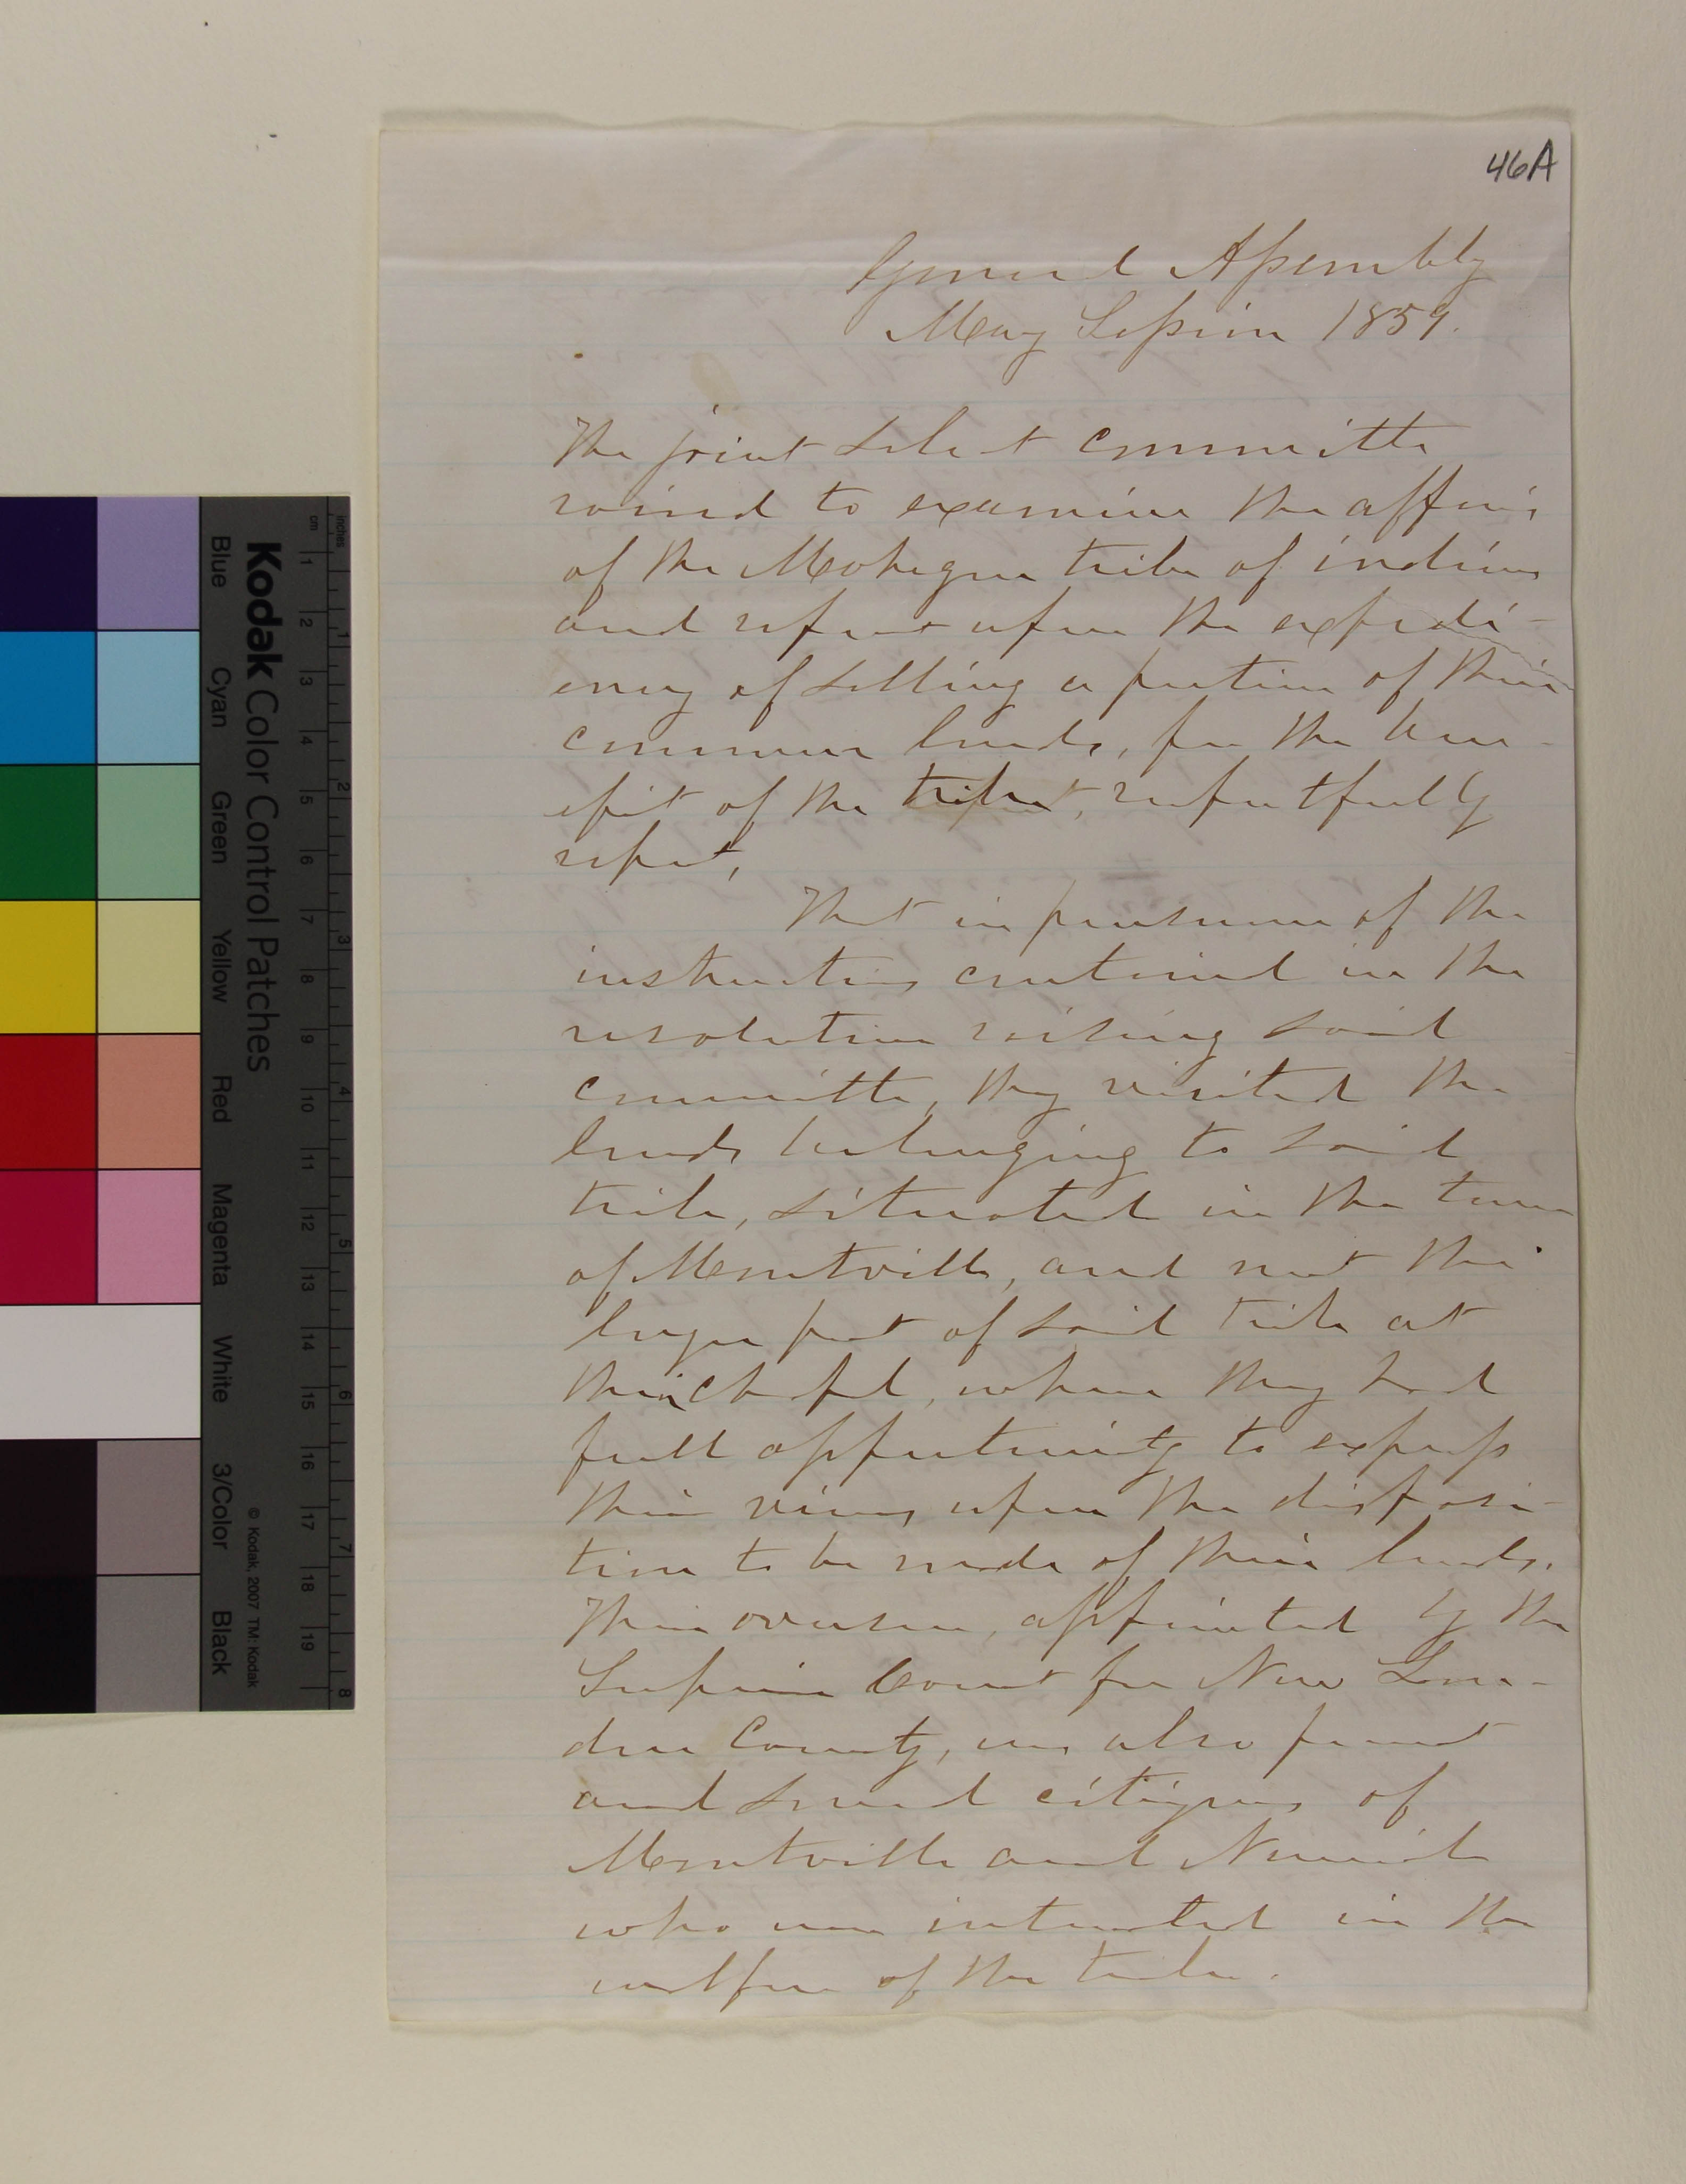 46A
General Assembly
May Session 1859.
The joint select committee
raised to examine the affairs
of the Mohegan tribe of indians
and report upon the expedi-
ency of selling a portion of their
common lands, for the ben-
efit of the tribe, respectfully
report,
That in pursuance of the
instructions contained in the
resolution raising said
committee, they visited the
lands belonging to said
tribe, situated in the town
of Montville, and met the
larger part of said tribe at
their chapel, where they had
full opportunity to express
their views upon the disposi-
tion to be made of their lands.
Their overseer, appointed by the
Superior Court for New Lon-
don County, was also present
and several citizens of
Montville and Norwich
who were interested in the
welfare of the tribe.
Kodak Color Control Patches
© Kodak, 2007 TM: Kodak
Blue Cyan Green Yellow Red Magenta White 3/Color Black
cm 1 2 3 4 5 6 7 8 9 10 11 12 13 14 15 16 17 18 19
inches 1 2 3 4 5 6 7 8